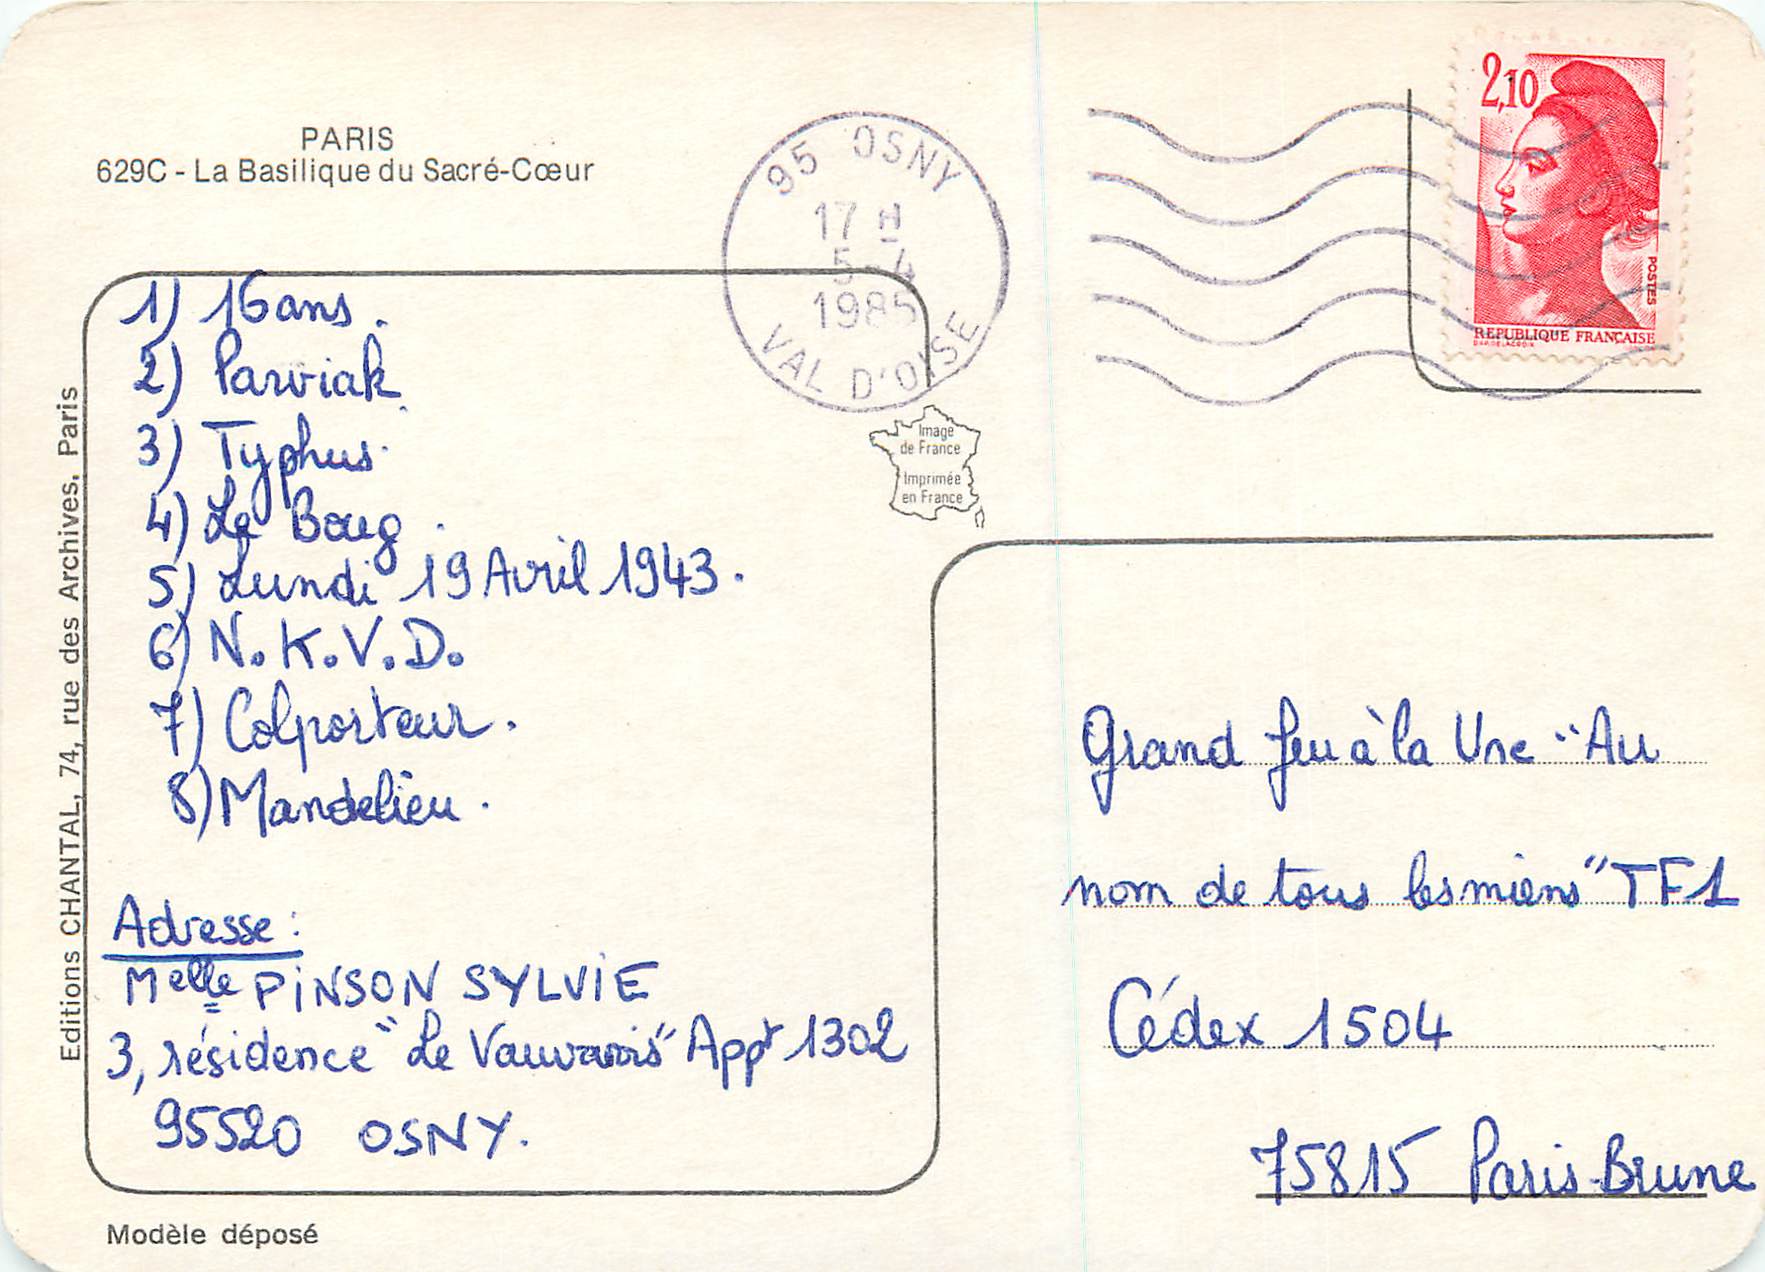 PARIS
629C - La Basilique du Sacré-Cœur
95 OSNY
17 H
5-4
1985
VAL D'OISE
2,10
POSTES
REPUBLIQUE FRANÇAISE
Image
de France
Imprimée
en France
1) 16 ans.
2) Parviak
3) Typhus.
4) Le Boug.
5) Lundi 19 Avril 1943.
6) N.K.V.D.
7) Colporteur.
8) Mandelieu.
Adresse :
Melle PINSON SYLVIE
3, résidence "Le Vauvarois" Appt 1302
95520 OSNY.
Grand Jeu à la Une "Au
nom de tous les miens" TF1
Cédex 1504
75815 Paris-Brune
Editions CHANTAL, 74, rue des Archives, Paris
Modèle déposé